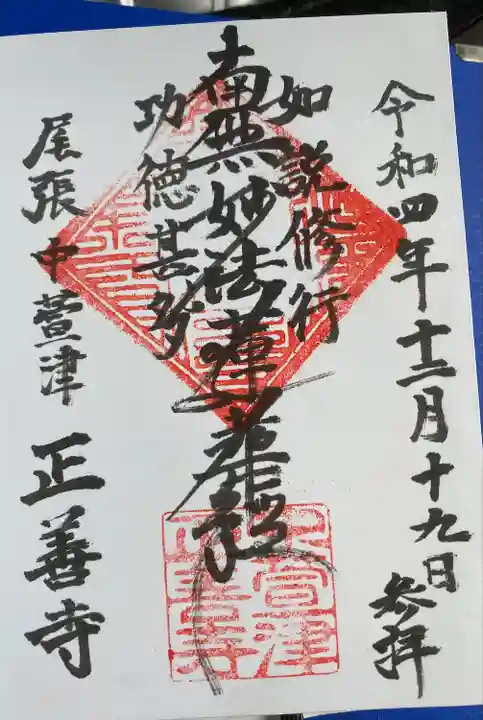 令和四年十二月十九日 参拝
如説修行
南無妙法蓮華経
功徳甚多
尾張中萱津 正善寺